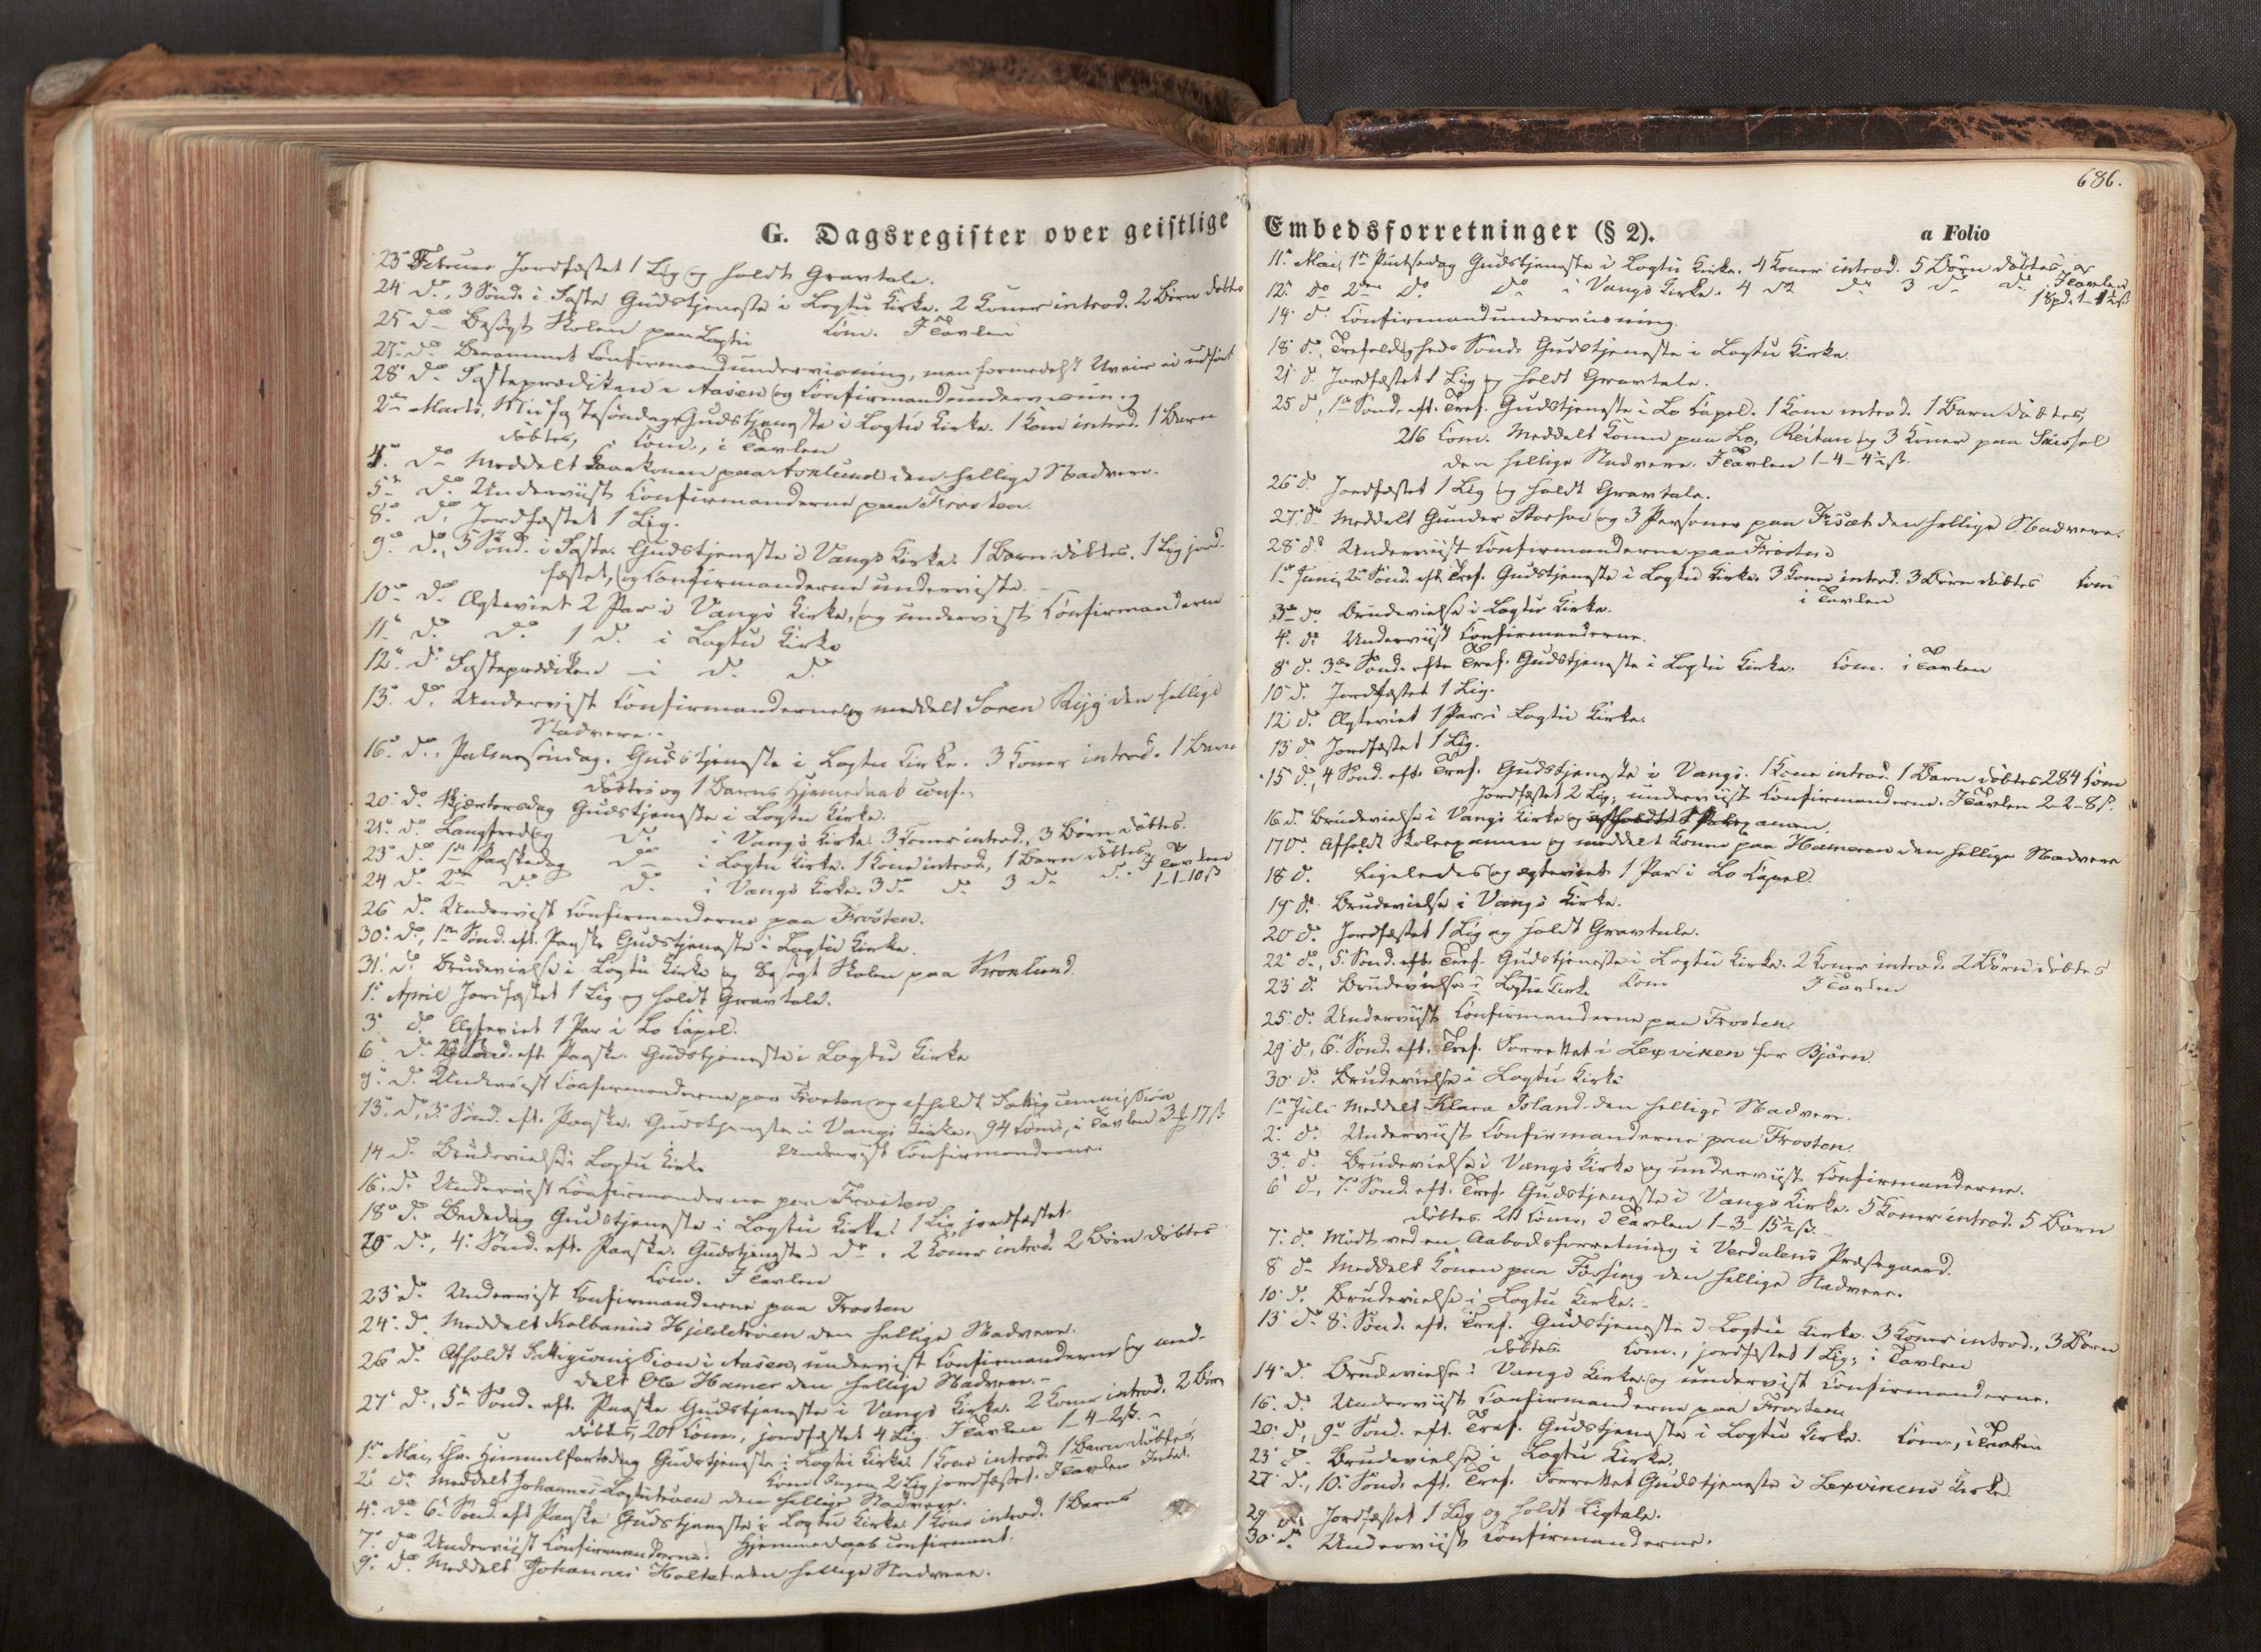 G. Dagsregister over geistlige
23de Februar Jordfæstet 1 Lig og holdt Gravtale.
24 do, 3 Sönd. i Faste Gudstjeneste i Logtu Kirke. 2 Koner introd. 2 Börn döbtes
Com. I Tavlen
25 do Besögt Skolen paa Logtu
27 do Berammet Confirmandundervisning, men formedelst Uveir ei udfört
28 do Fasteprædiken i Aasen og Confirmandundervisning
2den Marts, Midfastesöndag Gudstjeneste i Logtu Kirke. 1 Kone introd. 1 Barn
döbtes, Com., i Tavlen
4. do Meddelt Konen paa den hellige Nadvere.
5te do Underviist Confirmanderne paa Frosten.
8. do Jordfæstet 1 Lig.
9. do, 5 Sönd. i Faste. Gudstjeneste i Vangs Kirke. 1 Barn döbtes. 1 Lig jord-
fæstet, og Confirmanderne underviste.
10 do Ægteviet 2 Par i Vangs Kirke, og undervist Confirmanderne
11 do do 1 do i Logtu Kirke
12 do Fasteprædiken i do do
13. do Undervist Confirmanderne og meddelt Soren Rygg den hellige
Nadvere.
16. do, Palmesöndag. Gudstjeneste i Logtu Kirke. 3 Koner introd. 1 Barn
döbtes og 1 Barns Hjemmedaab conf.
20. do Skjærtorsdag Gudstjeneste i Logtu Kirke.
21. do Langfredag do i Vangs Kirke. 3 Koner introd., 3 Börn döbtes.
23 do 1ste Paaskedag do i Logtu Kirke. 1 Kone introd., 1 Barn döbtes, I Tavlen
24 do 2den do do i Vangs Kirke. 3 do do 3 do do 1-1-10 ß
26 do Undervist Confirmanderne paa Frosten.
30. do, 1ste Sönd. eft. Paaske Gudstjeneste i Logtu Kirke.
31. do Brudevielse i Logtu Kirke og besögt Skolen paa Kroxlund.
1. April Jordfæstet 1 Lig og holdt Gravtale.
3. do Ægteviet 1 Par i Lo Capel.
6 do 2 Sönd. eft. Paaske. Gudstjeneste i Logtu Kirke
9. do Undervist Confirmanderne paa Frosten og afholdt Fattigcommission
13. do, 3. Sönd. eft. Paaske. Gudstjeneste i Vangs Kirke. 94 Com., i Tavlen 3 17 ß
Undervist Confirmanderne.
14 do Brudevielse i Logtu Kirke
16. do Undervist Confirmanderne paa Frosten
18. do Bededag Gudstjeneste i Logtu Kirke. 1 Lig jordfæstet.
20 do, 4. Sönd. eft. Paaske. Gudstjeneste i do. 2 Koner introd. 2 Börn döbtes
Com. I Tavlen
23 do Undervist Confirmanderne paa Frosten
24. do Meddelt Kolbanus Hjeldetröen den hellige Nadvere.
26 do Afholdt Fattigcommission i Aasen, undervist Confirmanderne og med-
delt Ole Hamer den hellige Nadvere.
27 do, 5te Sönd. eft. Paaske Gudstjeneste i Vangs Kirke. 2 Koner introd. 2 Börn
döbtes, 201 Com., jordfæstet 4 Lig. I Tavlen 1-4-2 ß.
1ste Mai, Chr. Himmelfartsdag Gudstjeneste i Logtu Kirke. 1 Kone introd. 1 Barn döbtes,
Com. Ingen. 2 Lig jordfæstet. I Tavlen Intet.
2. do Meddelt Johannes Logtutröen den hellige Nadvere.
4. do 6. Sönd. eft. Paaske Gudstjeneste i Logtu Kirke. 1 Kone introd. 1 Barns
Hjemmedaab confirmeret.
7. do Underviist Confirmanderne.
9. do Meddelt Johannes Holtet den hellige Nadvere.
686.
Embedsforretninger (§ 2). a Folio
11. Mai, 1ste Pintsedag Gudstjeneste i Logtu Kirke. 4 Koner introd. 5 Börn döbtes,
12. do 2den do do i Vangs Kirke. 4 do do 3 do do I Tavlen
1 Spd. 1-1½ ß
14 do Confirmandundervisning.
18 do, Trefoldigheds Sönd. Gudstjeneste i Logtu Kirke.
21 do Jordfæstet 1 Lig og holdt Gravtale.
25 do, 1ste Sönd. eft. Tref. Gudstjeneste i Lo Capel. 1 Kone introd. 1 Barn döbtes,
216 Com. Meddelt Konen paa Lo, Reitan og 3 Koner paa
den hellige Nadvere. I Tavlen 1-4-4½ ß.
26 do Jordfæstet 1 Lig og holdt Gravtale.
27. do Meddelt Gunder og 3 Personer paa den hellige Nadvere.
28 do Underviist Confirmanderne paa Frosten
1ste Juni, 2. Sönd. eft. Tref. Gudstjeneste i Logtu Kirke. 3 Koner introd. 3 Börn döbtes Com
i Tavlen
3. do Brudevielse i Logtu Kirke.
4. do Underviist Confirmanderne.
8 do 3die Sönd. efter Tref. Gudstjeneste i Logtu Kirke. Com. i Tavlen
10 do Jordfæstet 1 Lig.
12 do Ægteviet 1 Par i Logtu Kirke.
13 do Jordfæstet 1 Lig.
15 do, 4 Sönd. eft. Tref. Gudstjeneste i Vangs. 1 Kone introd. 1 Barn döbtes 284 Com
Jordfæstet 2 Lig, underviist Confirmanderne. I Tavlen 2-2-8 ß.
16 do Brudevielse i Vangs Kirke
17 do Afholdt Skoleexamen og meddelt Konen paa Hameren den hellige Nadvere
18 do Ligeledes og ægteviet 1 Par i Lo Capel.
19 do Brudevielse i Vangs Kirke.
20 do Jordfæstet 1 Lig og holdt Gravtale.
22 do, 5. Sönd. eft. Tref. Gudstjeneste i Logtu Kirke. 2 Koner introd. 2 Börn döbtes
Com I Tavlen
23 do Brudevielse i Logtu Kirke
25. do Underviist Confirmanderne paa Frosten.
29 do, 6. Sönd. eft. Tref. Forrettet i Lexviken for Björn
30 do Brudevielse i Logtu Kirke
1ste Juli Meddelt Klara Island den hellige Nadvere.
2. do Underviist Confirmanderne paa Frosten.
3. do Brudevielse i Vangs Kirke og underviist Confirmanderne.
6 do, 7. Sönd. eft. Tref. Gudstjeneste i Vangs Kirke. 5 Koner introd. 5 Börn
döbtes. 211 Com., I Tavlen 1-3-15½ ß.
7. do Mödt ved en Aabodsforretning i Verdalens Præstegaard.
8 do Meddelt Konen paa den hellige Nadvere.
10. do Brudevielse i Logtu Kirke.
13 do 8. Sönd. eft. Tref. Gudstjeneste i Logtu Kirke. 3 Koner introd., 3 Börn
döbtes Com., jordfæstet 1 Lig, i Tavlen
14 do Brudevielse i Vangs Kirke og undervist Confirmanderne.
16. do Underviist Confirmanderne paa Frosten
20. do, 9. Sönd. eft. Tref. Gudstjeneste i Logtu Kirke. Com., i Tavlen
23 do Brudevielse i Logtu Kirke.
27 do, 10. Sönd. eft. Tref. Forrettet Gudstjeneste i Lexvikens Kirke.
29 do Jordfæstet 1 Lig og holdt Ligtale.
30. do Underviist Confirmanderne.